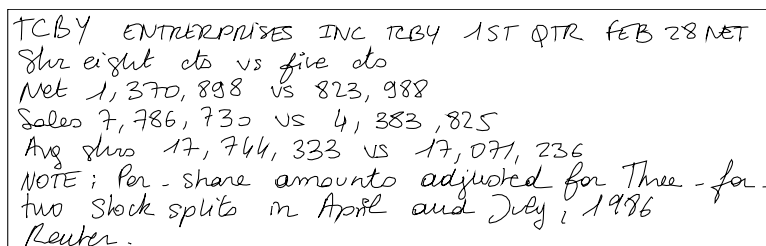 TCBY ENTRERPRISES INC TCBY 1ST QTR FEB 28 NET
Shr eight cts vs five cts
Net 1,370,898 vs 823,988
Sales 7,786,730 vs 4,383,825
Avg shrs 17,744,333 vs 17,071,236
NOTE: Per-share amounts adjusted for Three-for-
two stock splits in April and July, 1986
Reuter.